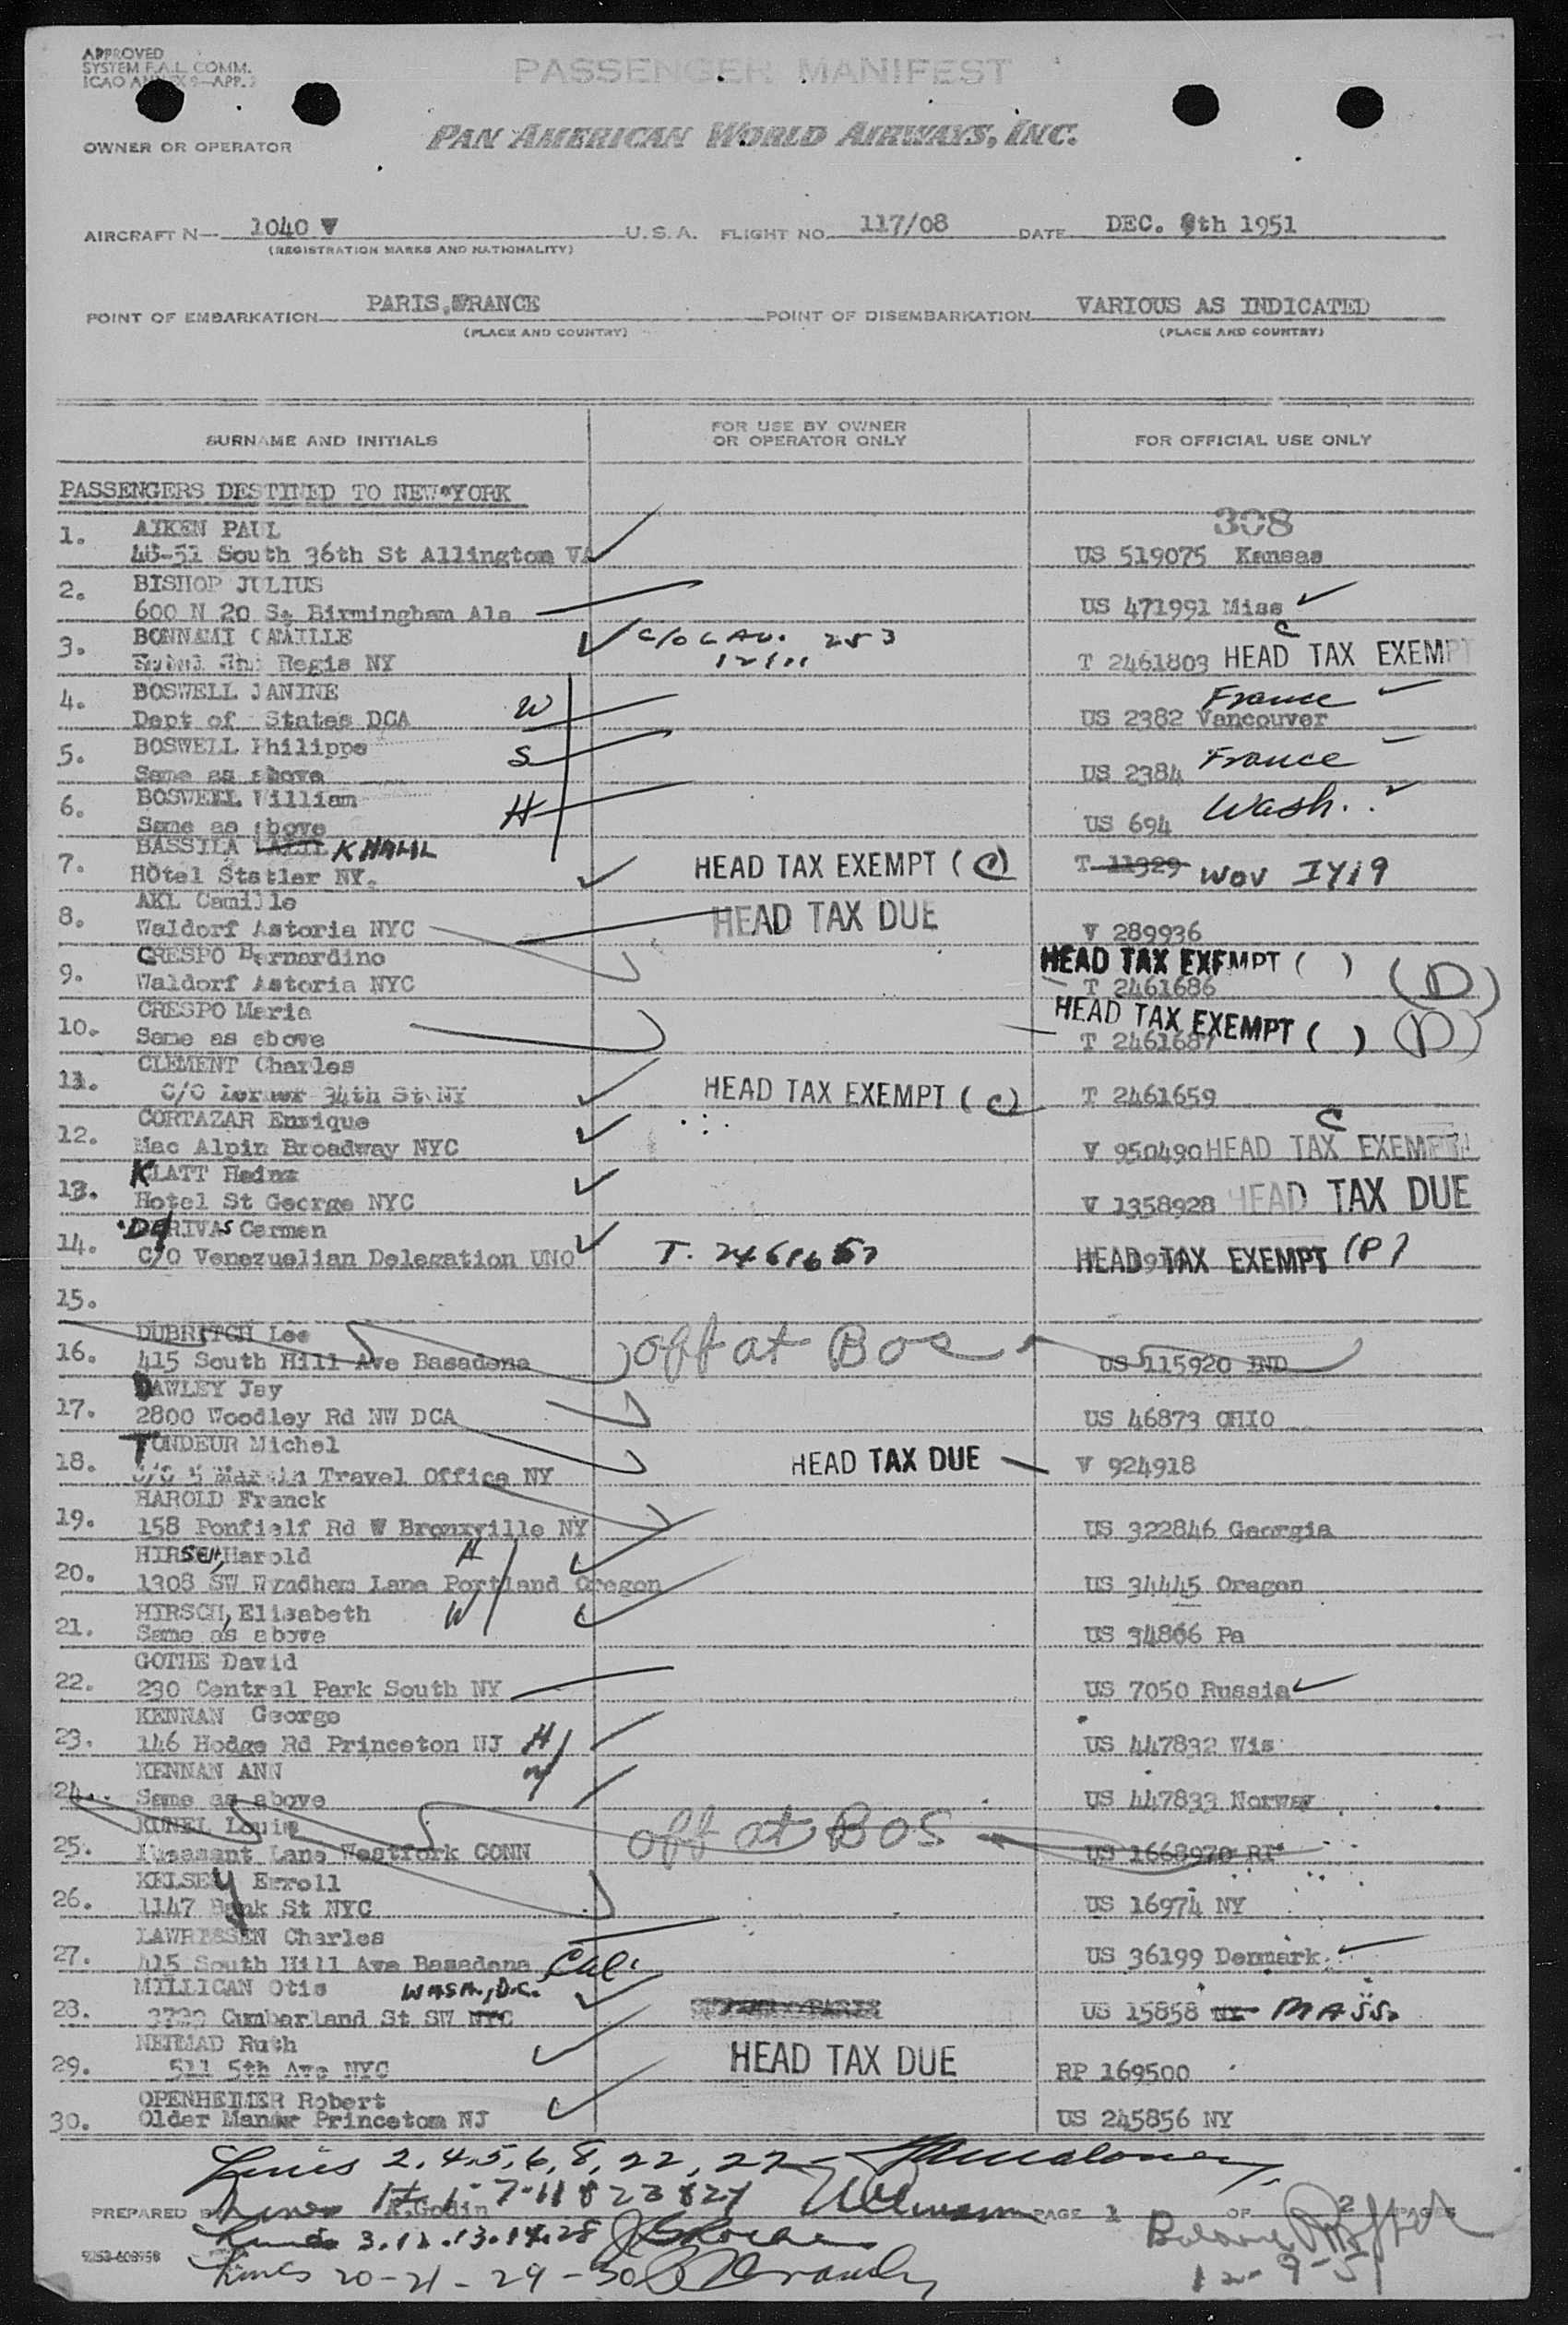 APPROVED
SYSTEM F.A.L. COMM.
ICAO ANNEX 9—APP. 2
PASSENGER MANIFEST
OWNER OR OPERATOR PAN AMERICAN WORLD AIRWAYS, INC.
AIRCRAFT N— 1040 V U.S.A. FLIGHT NO. 117/08 DATE DEC. 9th 1951
(REGISTRATION MARKS AND NATIONALITY)
POINT OF EMBARKATION PARIS, FRANCE POINT OF DISEMBARKATION VARIOUS AS INDICATED
(PLACE AND COUNTRY) (PLACE AND COUNTRY)
SURNAME AND INITIALS FOR USE BY OWNER OR OPERATOR ONLY FOR OFFICIAL USE ONLY
PASSENGERS DESTINED TO NEW YORK
308
1. AIKEN PAUL
48-51 South 36th St Allington VA US 519075 Kansas
2. BISHOP JULIUS
600 N 20 St Birmingham Ala US 471991 Miss
3. BONNAMI CAMILLE C/O 253 C
Regis NY T 2461803 HEAD TAX EXEMPT
4. BOSWELL JANINE W France
Dept of States DCA US 2382 Vancouver
5. BOSWELL Philippe S France
Same as above US 2384
6. BOSWELL William H Wash.
Same as above US 694
7. BASSILA KHALIL HEAD TAX EXEMPT (C)
Hôtel Statler NY. T 11329 WOV
8. AKL Camille HEAD TAX DUE
Waldorf Astoria NYC V 289936
9. CRESPO Bernardino HEAD TAX EXEMPT ( ) (D)
Waldorf Astoria NYC T 2461686
10. CRESPO Maria HEAD TAX EXEMPT ( ) (D)
Same as above T 2461687
11. CLEMENT Charles HEAD TAX EXEMPT (C)
C/O Lerner 34th St NY T 2461659
12. CORTAZAR Enrique C
Mac Alpin Broadway NYC V 950490 HEAD TAX EXEMPT
13. KLATT Heinz
Hotel St George NYC V 1358928 HEAD TAX DUE
14. DE RIVAS Carmen
C/O Venezuelian Delegation UNO T. HEAD TAX EXEMPT (P)
15.
16. DUBRITCH Lee off at Bos
415 South Hill Ave Basadena US 115920 IND
17. DAWLEY Jay
2800 Woodley Rd NW DCA US 46873 OHIO
18. TONDEUR Michel HEAD TAX DUE
Travel Office NY V 924918
19. HAROLD Franck
158 Ponfielf Rd W Bronxville NY US 322846 Georgia
20. HIRSCH, Harold H
1308 SW Wyndham Lane Portland Oregon US 34445 Oregon
21. HIRSCH, Elisabeth W
Same as above US 34806 Pa
22. GOTHE David
230 Central Park South NY US 7050 Russia
23. KENNAN George
146 Hodge Rd Princeton NJ H US 447832 Wis
24. KENNAN ANN W
Same as above US 447833 Norway
25. Louis off at BOS
Lane Westfork CONN US 1668970 RI
26. KELSEY Erroll
1147 Bank St NYC US 16974 NY
27. LAWRESSEN Charles
415 South Hill Ave Basadena Cal. US 36199 Denmark
28. MILLICAN Otis WASH., D.C.
Cumberland St SW NYC US 15858 NY MASS.
29. Ruth HEAD TAX DUE
511 5th Ave NYC RP 169500
30. OPENHEIMER Robert
Older Manor Princetom NJ US 245856 NY
Lines 2, 4, 5, 6, 8, 22, 27
Lines 7-11 & 23 & 24
PREPARED BY A. Godin PAGE 1 OF 2 PAGES
Lines 3. 12. 13. 14. 28
Lines 20-21-29-30
12-9-51